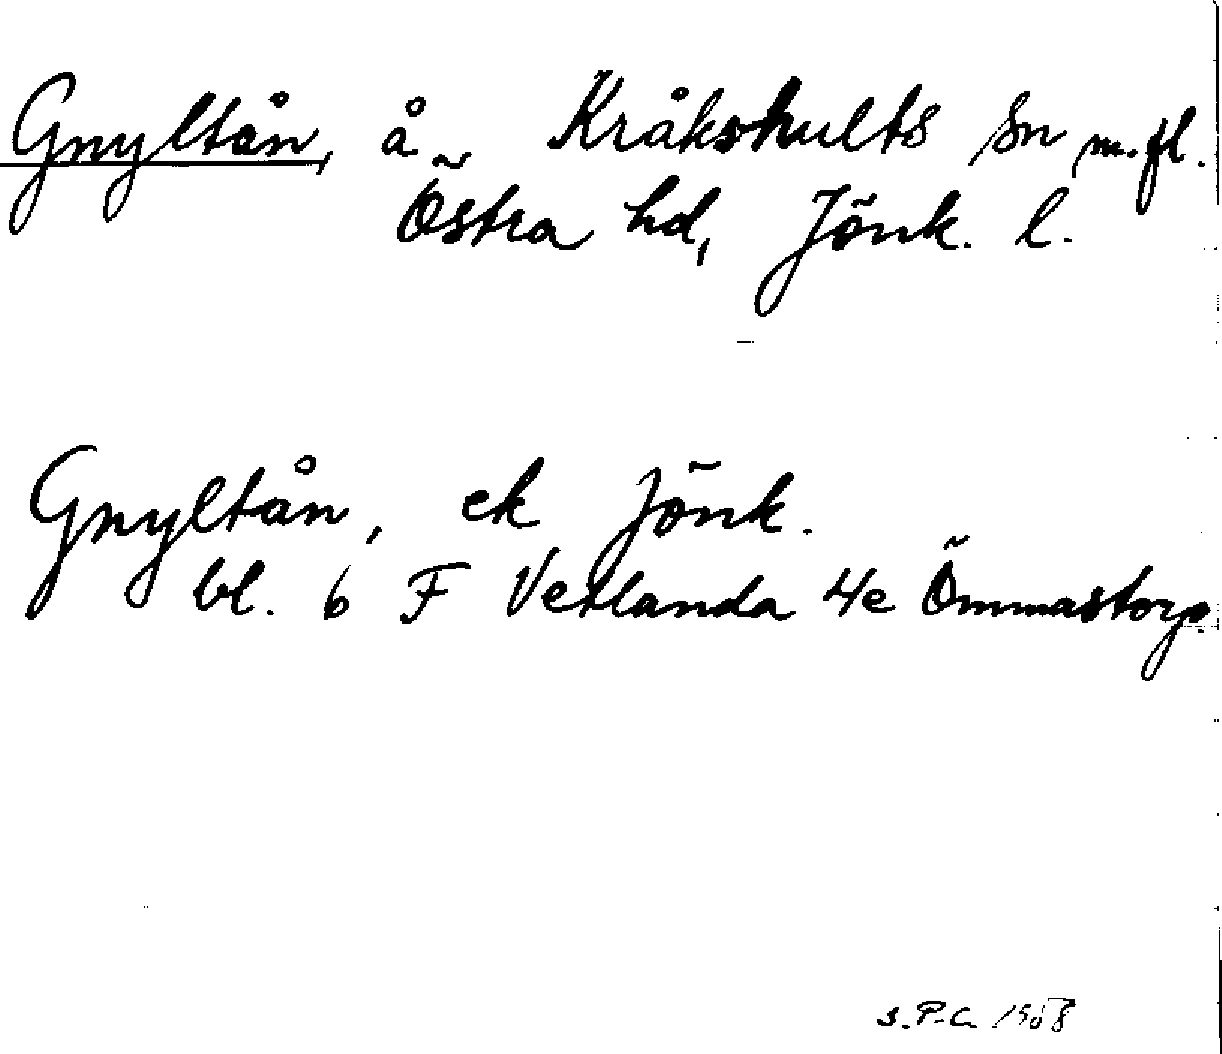 Gnyltån, å Kråkshults sn m.fl.
Östra hd, Jönk. l.
Gnyltån, ek Jönk.
bl. 6 F Vetlanda 4e Ömmastorp.
S.P.C. 1958